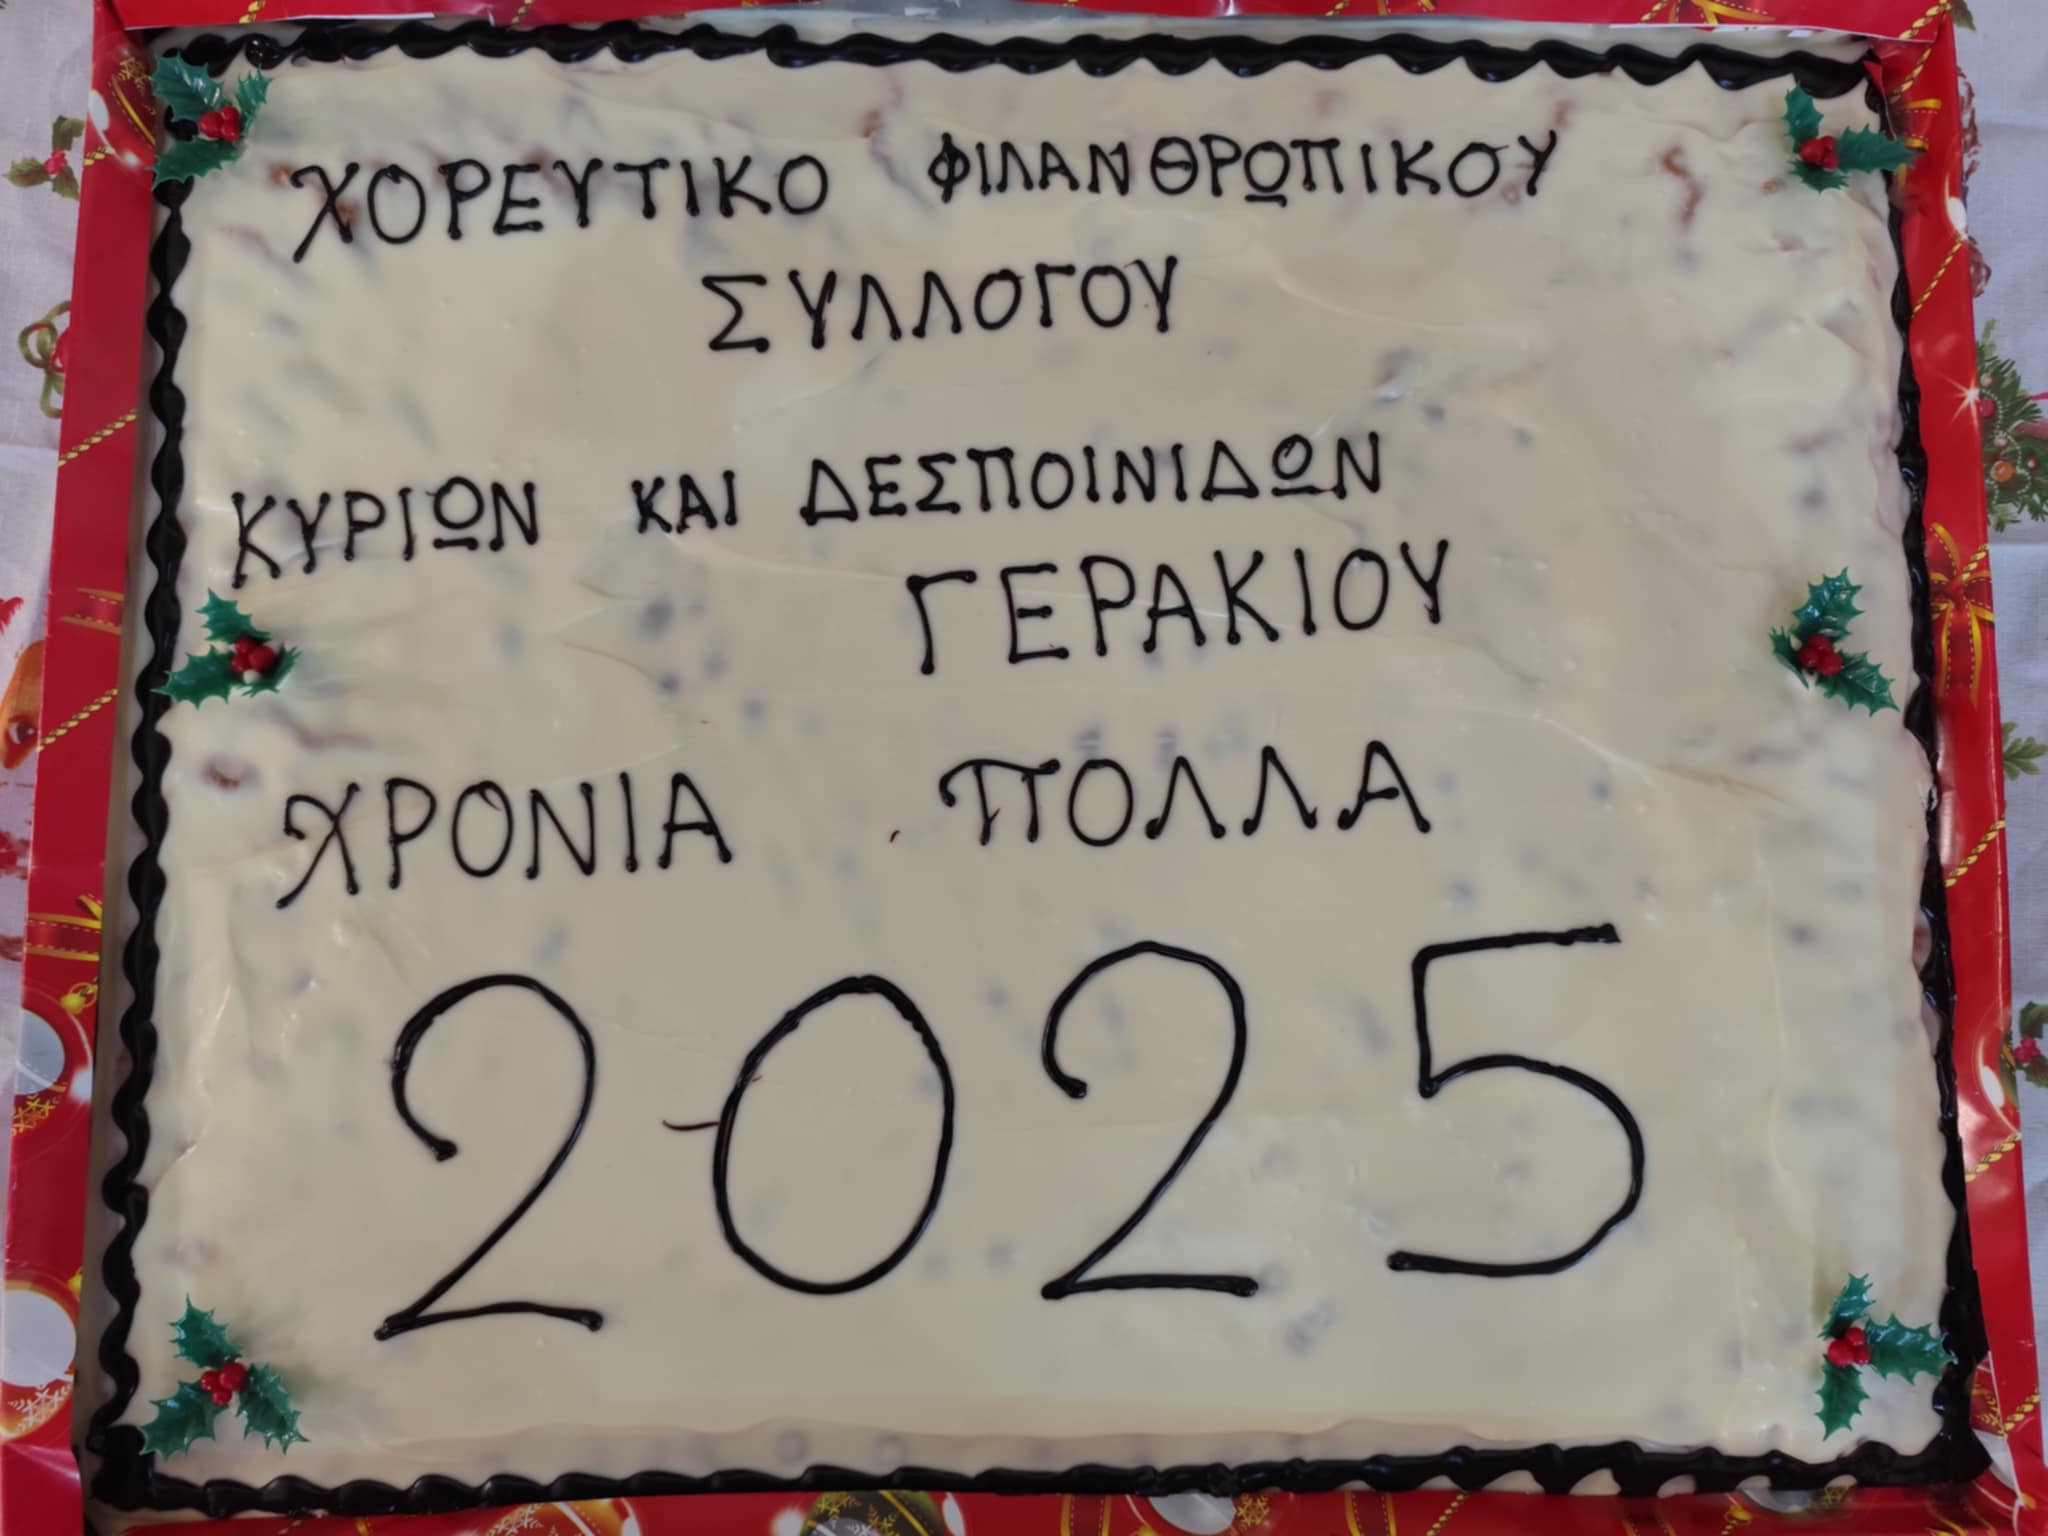 ΧΟΡΕΥΤΙΚΟ ΦΙΛΑΝΘΡΩΠΙΚΟΥ
ΣΥΛΛΟΓΟΥ
ΚΥΡΙΩΝ ΚΑΙ ΔΕΣΠΟΙΝΙΔΩΝ
ΓΕΡΑΚΙΟΥ
ΧΡΟΝΙΑ ΠΟΛΛΑ
2025